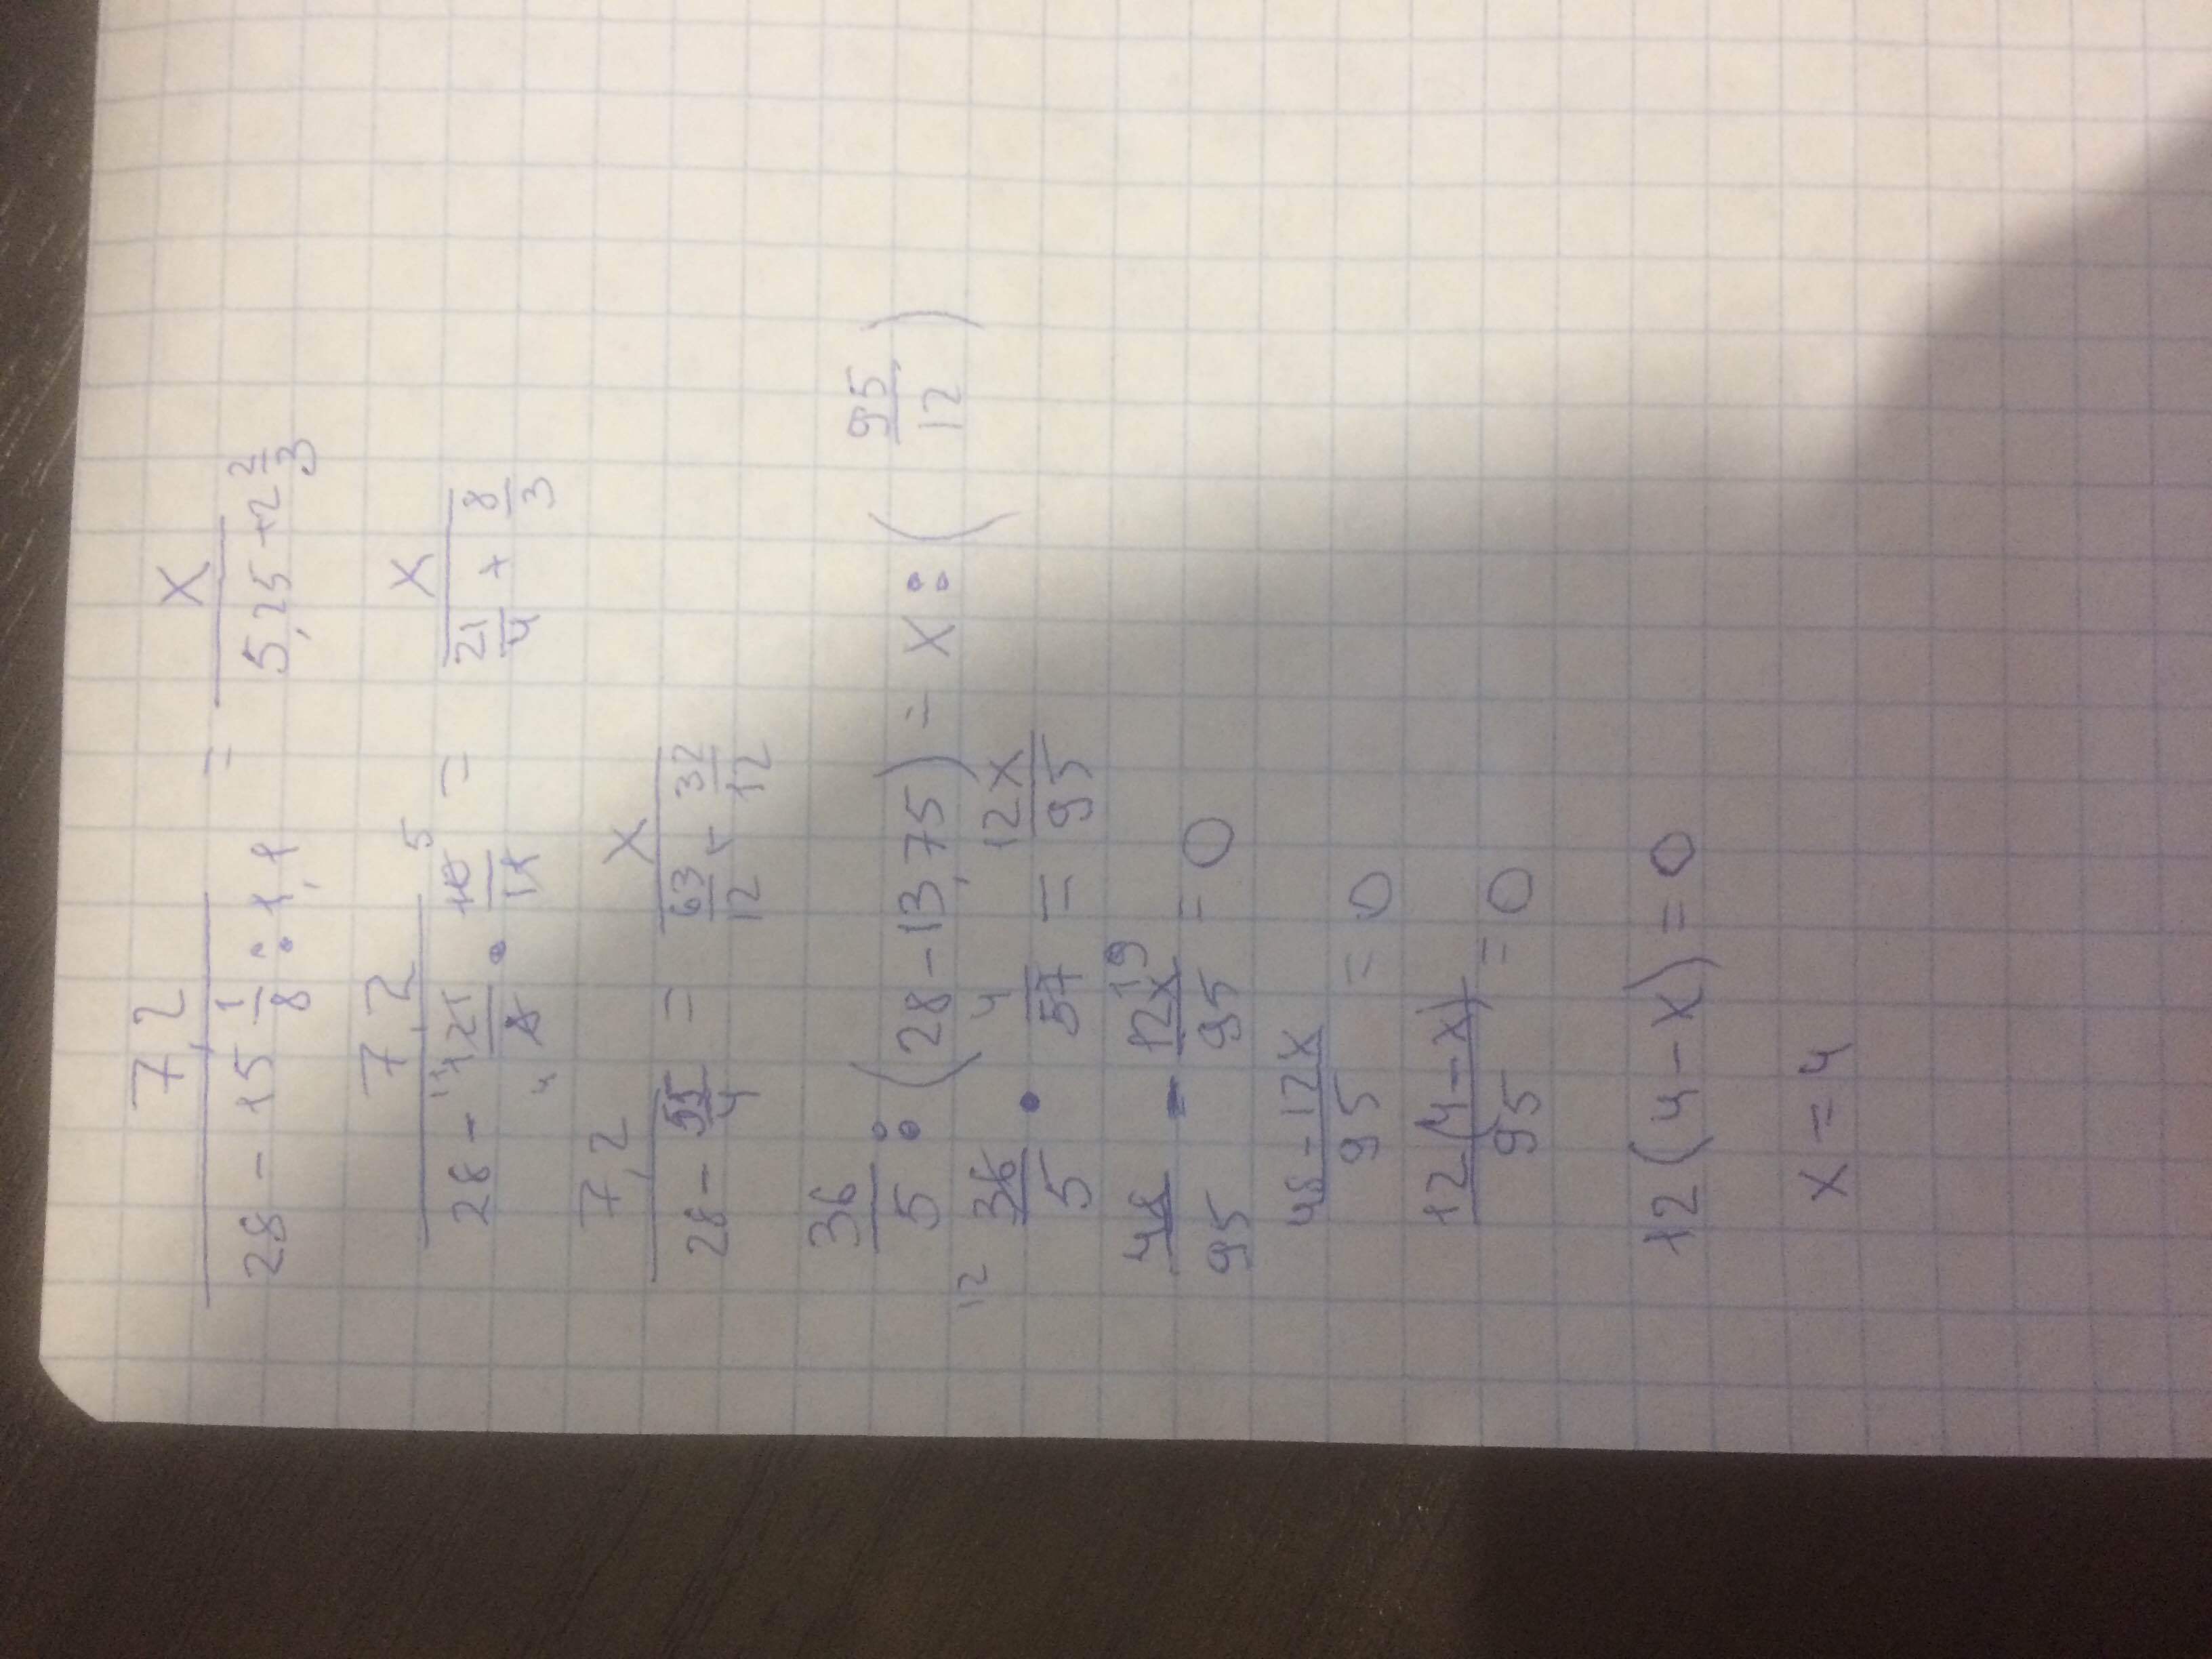 7,2/(28 - 15 1/8 : 1,1) = X/(5,25 + 2 2/3)
7,2/(28 - 11 121/8 4 · 10/11 5) = X/(21/4 + 8/3)
7,2/(28 - 55/4) = X/(63/12 + 32/12)
36/5 : (28 - 13,75) = X : (95/12)
12 36/5 · 4/57 19 = 12X/95
48/95 - 12X/95 = 0
48 - 12X/95 = 0
12(4-X)/95 = 0
12(4-X) = 0
X = 4